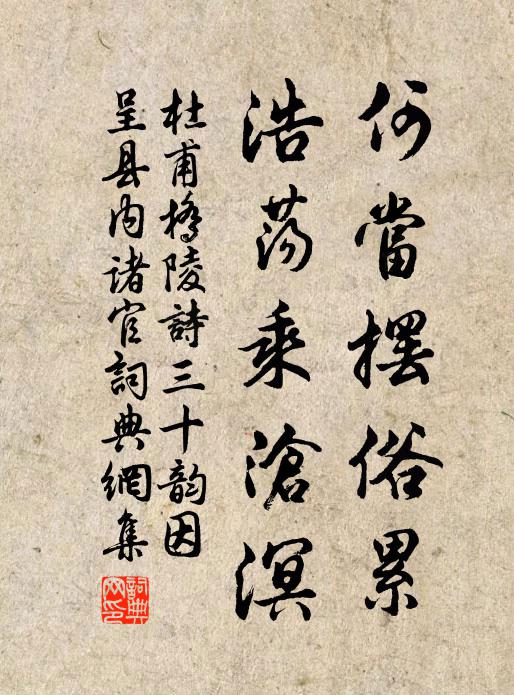 何當擺俗累
浩荡乘滄溟
杜甫橋陵詩三十韵因
呈县内诸官詞典網集
詞典